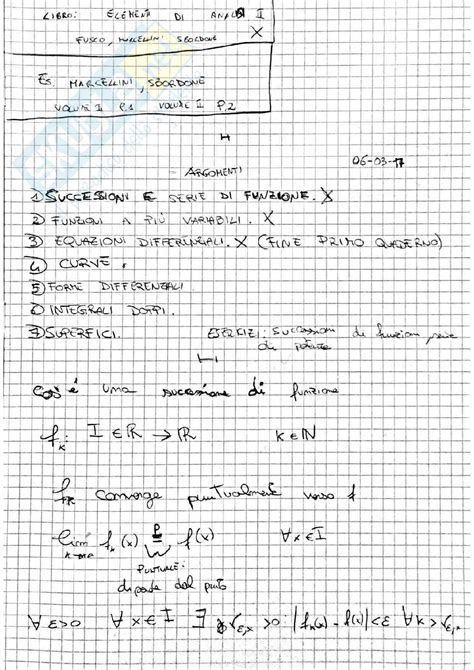 LIBRO: ELEMENTI DI ANALISI II
FUSCO, MARCELLINI SBORDONE X
ES. MARCELLINI, SBORDONE
VOLUME II P.1 VOLUME II P.2
ARGOMENTI 06-03-17
1) SUCCESSIONI E SERIE DI FUNZIONE. X
2) FUNZIONI A PIÙ VARIABILI. X
3) EQUAZIONI DIFFERENZIALI. X (FINE PRIMO QUADERNO)
4) CURVE.
5) FORME DIFFERENZIALI
6) INTEGRALI DOPPI.
7) SUPERFICI. ESERCIZI: successioni di funzioni serie
di potenze
Cos'è una successione di funzione
f_k: I ∈ ℝ → ℝ k ∈ ℕ
f_k converge puntualmente verso f
lim f_k(x) = f(x) ∀ x ∈ I
k→∞ P
PUNTUALE:
dipende dal punto
∀ ε>0 ∀ x ∈ I ∃ ν_{ε,x} >0 |f_k(x) - f(x)| < ε ∀ k > ν_{ε,x}